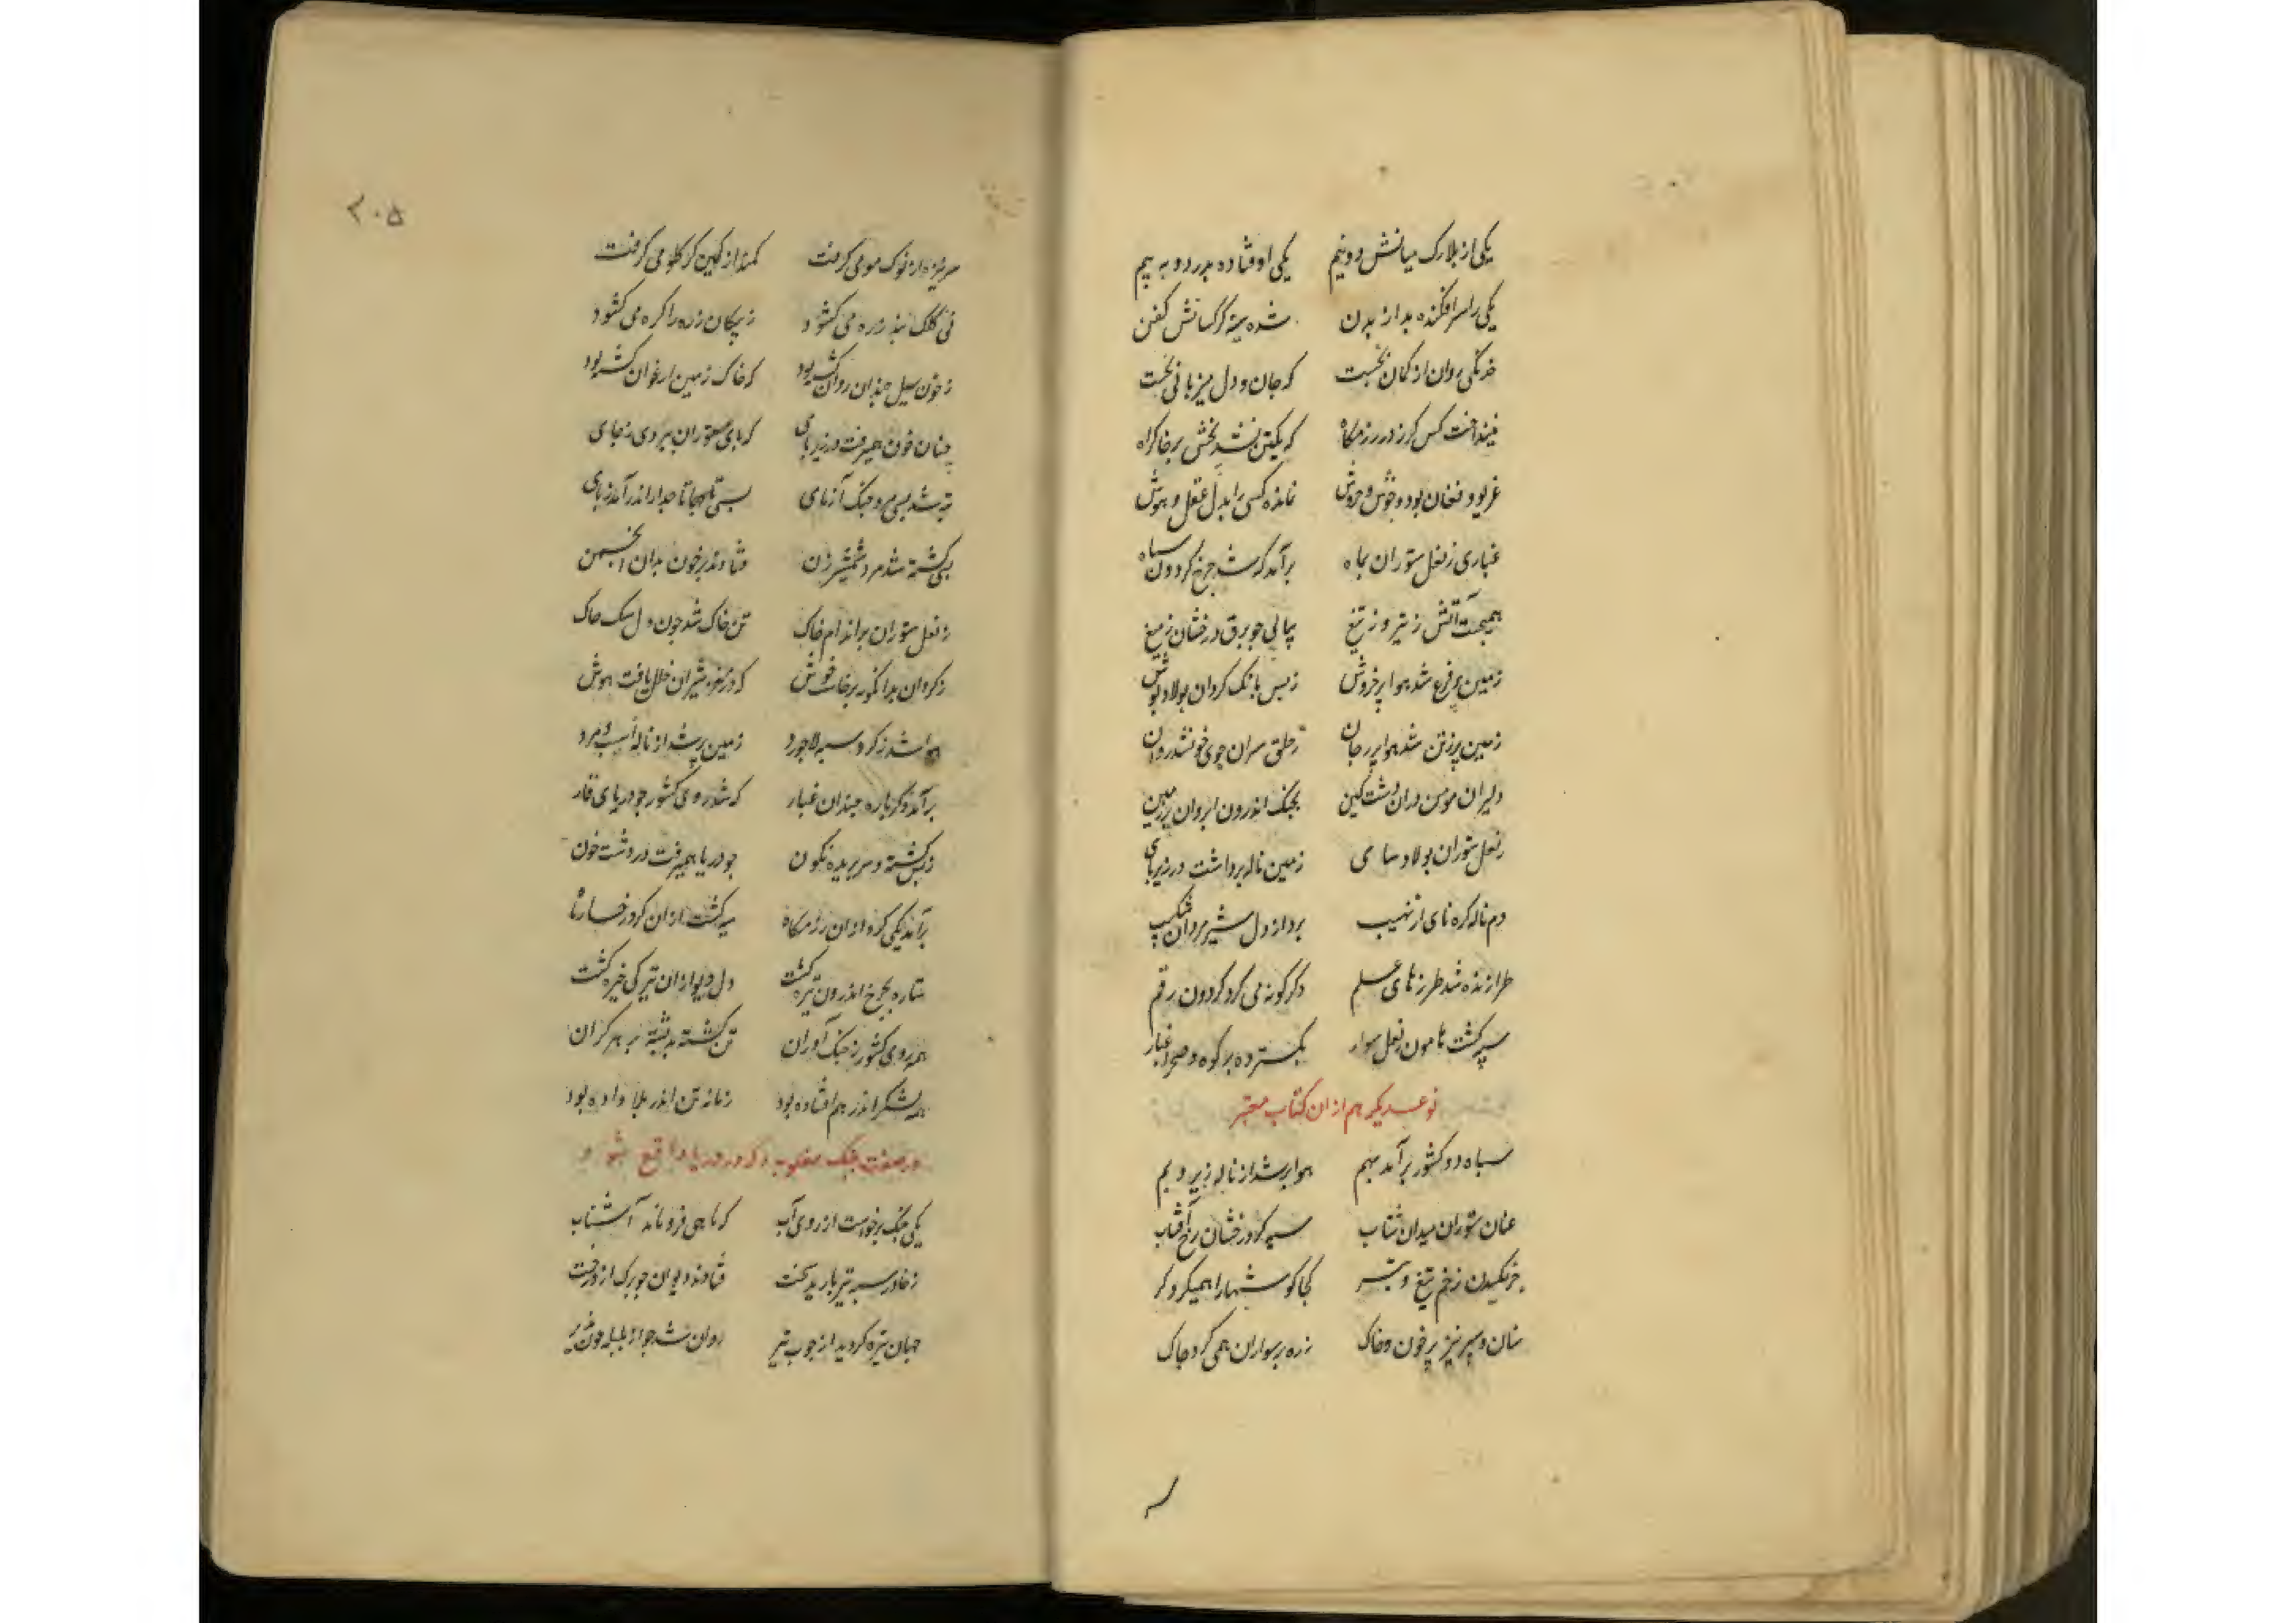 یکی از بلارک میانش دو نیم یکی اوفتاده بدرد و به بیم
یکی را سر افکنده بد از بدن شده سینه کرکسانش کفن
خدنکی روان از کمان نجست که جان و دل میزبانی نخست
نینداخت کس کرز در رزمکاه که یکتن نشد بخش بر خاک راه
غریو و فغان بود و جوش و خروش نمانده کسی را بدل عقل و هوش
غباری ز نعل ستوران بماه برآمد که شد چرخ کردون سیاه
همیجست آتش ز تیر و ز تیغ پیاپی چو برق درخشان ز میغ
زمین پر فزع شد هوا پر خروش ز بس بانک کردان پولاد پوش
زمین پر ز تن شد هوا پر ز جان ز حلق سران جوی خون شد روان
دلیران مومن دران دشت کین بجنک اندرون ابروان پر ز چین
ز نعل ستوران پولاد سای زمین ناله برداشت در زیر پای
دم ناله کره نای از نهیب برد از دل شیر مردان شکیب
طرازنده شد طرزهای علم دکرکونه می کرد کردون رقم
سیه کشت هامون ز نعل سوار بکسترده بر کوه و صحرا غبار
نوعدیکر هم ازان کتاب معتبر
سپاه دو کشور برآمد بهم هوا پر شد از ناله زیر و بم
عنان ستوران میدان شتاب سیه کرد رخشان رخ آفتاب
جرنکیدن زخم تیغ و تبر کجا کوشها را همیکرد کر
سنان و سر نیزه پر خون و خاک زره بر سواران همی کرد چاک
۲۰۵
سر نیزه از نوک مو می کرفت کمند از کمین کر کلو می کرفت
نی کلک بند زره می کشود ز پیکان زره را کره می کشود
ز خون سیل چندان روان کشته بود که خاک زمین ارغوان کشته بود
چنان خون همیرفت در زیر پای که پای ستوران ببردی ز جای
تبه شد بسی مرد جنک آزمای بسی تاجها تاجدار اندر آمد ز پای
بسی کشته شد مرد شمشیر زن فتادند بر خون بدان انجمن
ز نعل ستوران بر اندام خاک تن خاک شد چون دل سنک چاک
ز کردان بدانکونه برخاست جوش که در مغز شیران خلل یافت هوش
هوا شد ز کرد سپه لاجورد زمین پر شد از ناله اسپ و مرد
برآمد دکر باره چندان غبار که شد روی کشور چو دریای قار
ز بس کشته و سر بریده نکون چو دریا همیرفت در دشت خون
برآمد یکی کرد ازان رزمکاه سیه کشت ازان کرد رخسار ماه
ستاره بچرخ اندرون تیره کشت دل دیو ازان تیرکی خیره کشت
همه روی کشور ز جنک آوران تن کشته بد پشته بر هر کران
همه لشکر اندر هم افتاده بود زمانه تن اندر بلا داده بود
در صفت جنک مغلوبه دکر در دریا واقع شود
یکی جنک برخواست از روی آب که ماهی فرو ماند آشناب
ز خاور سپه تیر بارید سخت فتادند دیوان چو برک از درخت
جهان تیره کردید از چوب تیر روان شد چو از بلبله خون شیر